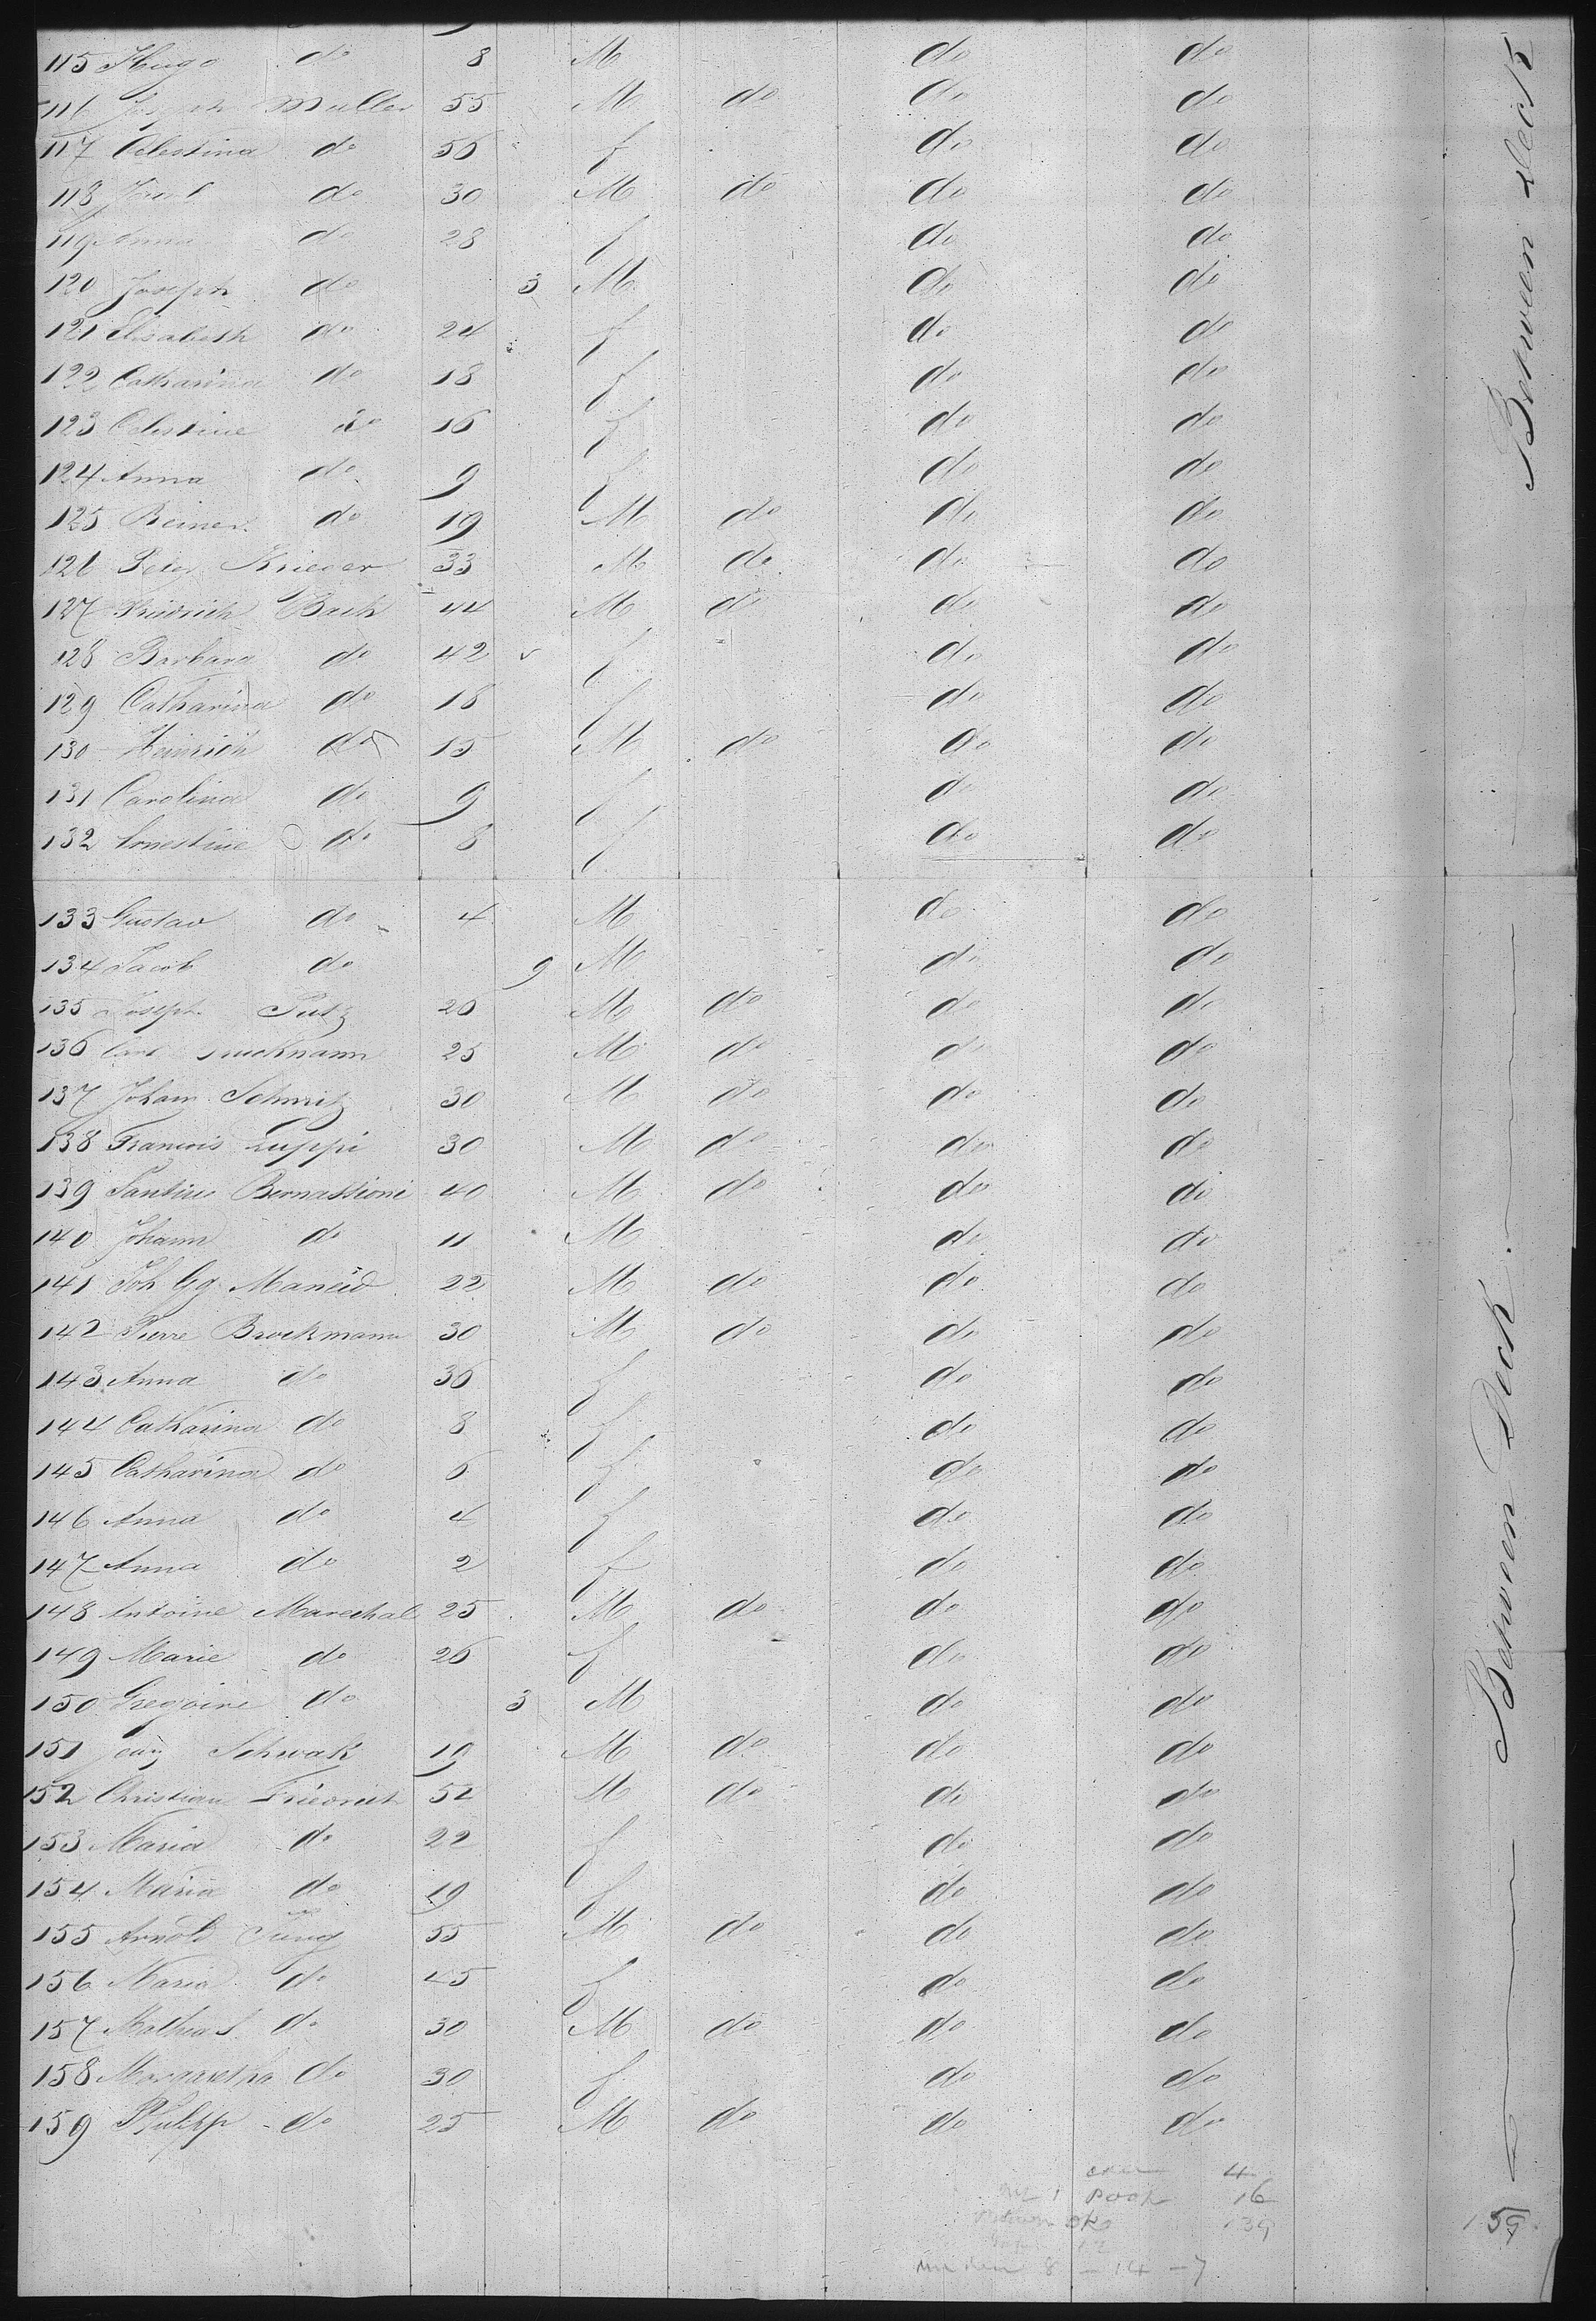 115 Hugo do 8 M do do
116 Joseph Muller 55 M do do do
117 Celestina do 56 f do do
118 Jacob do 30 M do do do
119 Anna do 28 f do do
120 Joseph do 3 M do do
121 Elisabeth do 24 f do do
122 Catharina do 18 f do do
123 Celestine do 16 f do do
124 Anna do 9 f do do
125 Reiner do 19 M do do do
126 Peter Krieger 33 M do do do
127 Friedrich Bach 44 M do do do
128 Barbara do 42 f do do
129 Catharina do 18 f do do
130 Heinrich do 15 M do do do
131 Carolina do 9 f do do
132 Ernestine do 8 f do do
133 Gustav do 4 M do do
134 Jacob do 9 M do do
135 Joseph Putz 26 M do do do
136 Carl 25 M do do do
137 Johan Schmitz 30 M do do do
138 Francois Luppi 30 M do do do
139 Bernassioni 40 M do do do
140 Johann do 11 M do do
141 Joh Gg 22 M do do do
142 Pierre Brockmann 30 M do do do
143 Anna do 36 f do do
144 Catharina do 8 f do do
145 Catharina do 6 f do do
146 Anna do 4 f do do
147 Anna do 2 f do do
148 Antoine Marechal 25 M do do do
149 Marie do 26 f do do
150 Gregoire do 3 M do do
151 Schwak 19 M do do do
152 Christian Friedrich 52 M do do do
153 Maria do 22 f do do
154 Maria do 19 f do do
155 Arnold Jung 55 M do do do
156 Maria do 45 f do do
157 Mathias do 30 M do do do
158 Margaretha do 30 f do do
159 Philipp do 25 M do do do
4
Poop 16
Between 139
8 - 14 - 7
Between Deck
Between Deck
159